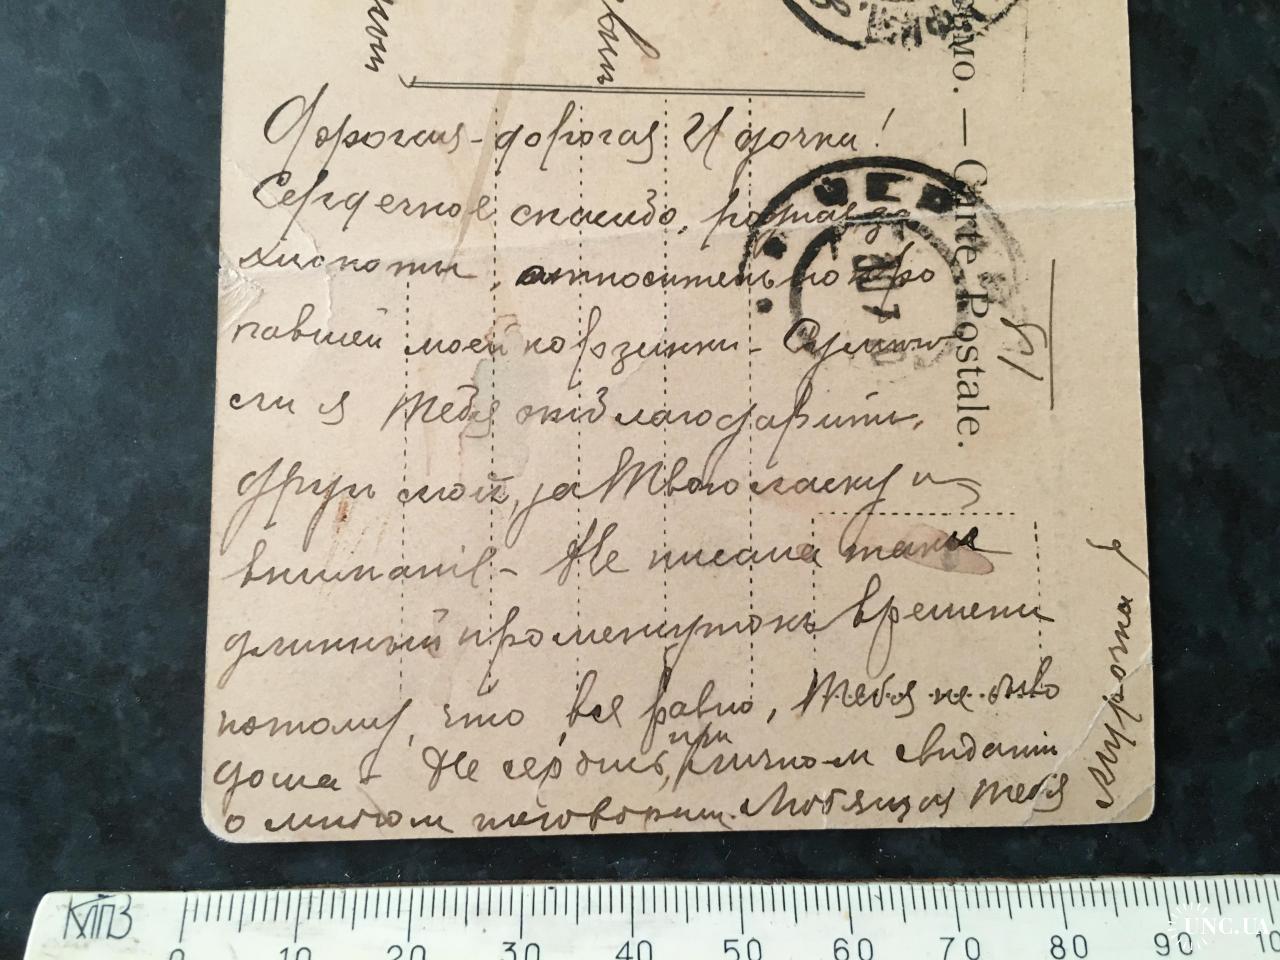 Дорогая-дорогая Идочка!
Сердечное спасибо, родная за
хлопоты, относительно про
павшей моей корзинки. Сумею
ли я Тебя отблагодарить,
другъ мой, за Твою ласку и
вниманіе - Не писала такъ
длинный промежутокъ времени
потому, что все равно, Тебя не было
дома - Не сердись, при личном свиданіи
о многом поговорим. Любящая Тебя
Мурочка
Carte Postale.
ЧЕР
КПВЗ
0 10 20 30 40 50 60 70 80 90 10
UNC.UA